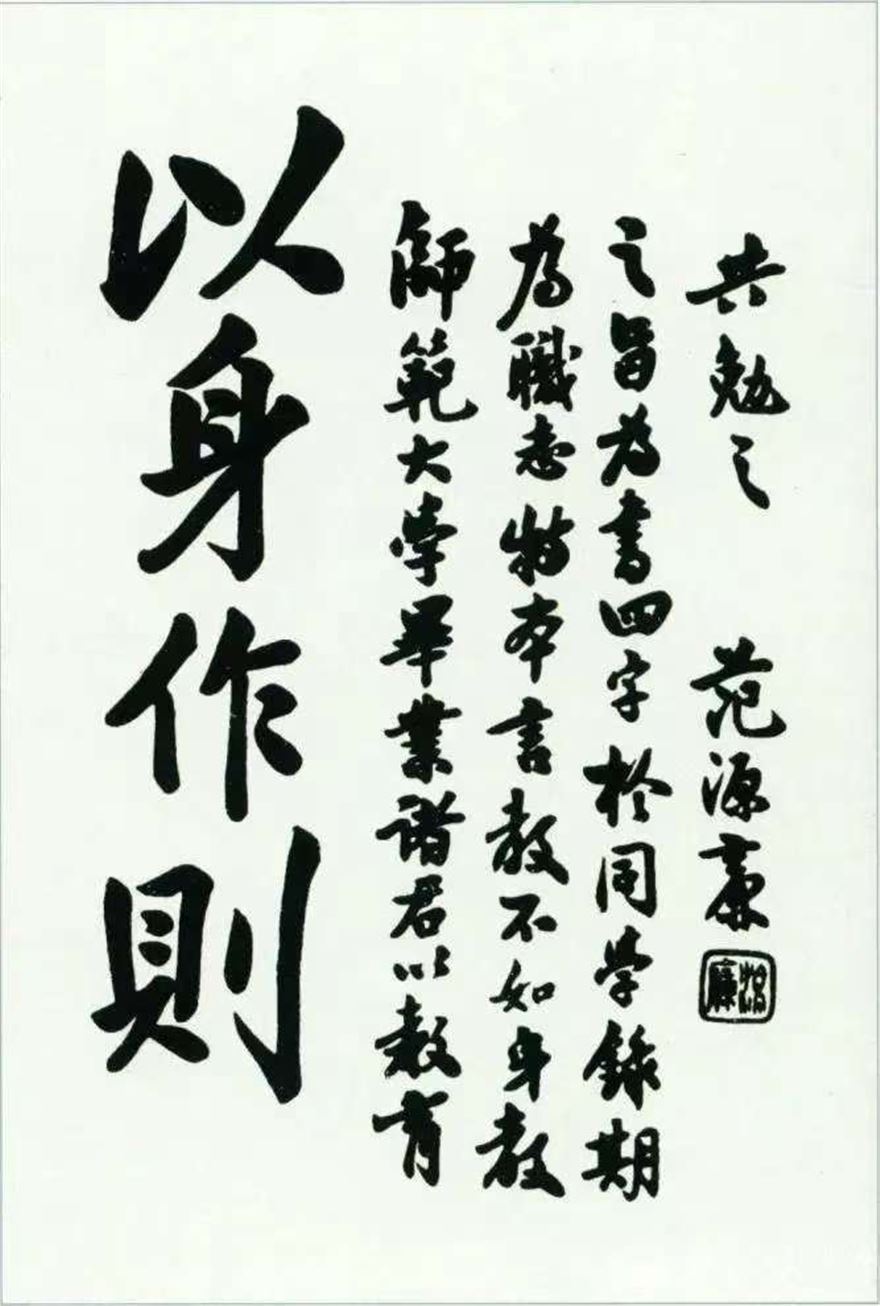 以身作則
師範大學畢業諸君以教育
為職志特本言教不如身教
之旨為書四字於同学錄期
共勉之 范源廉
源廉